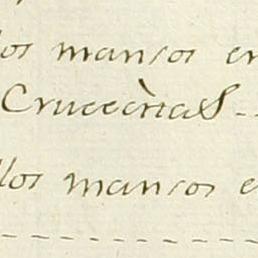 los mansos en
Cruceènas
llos mansos e